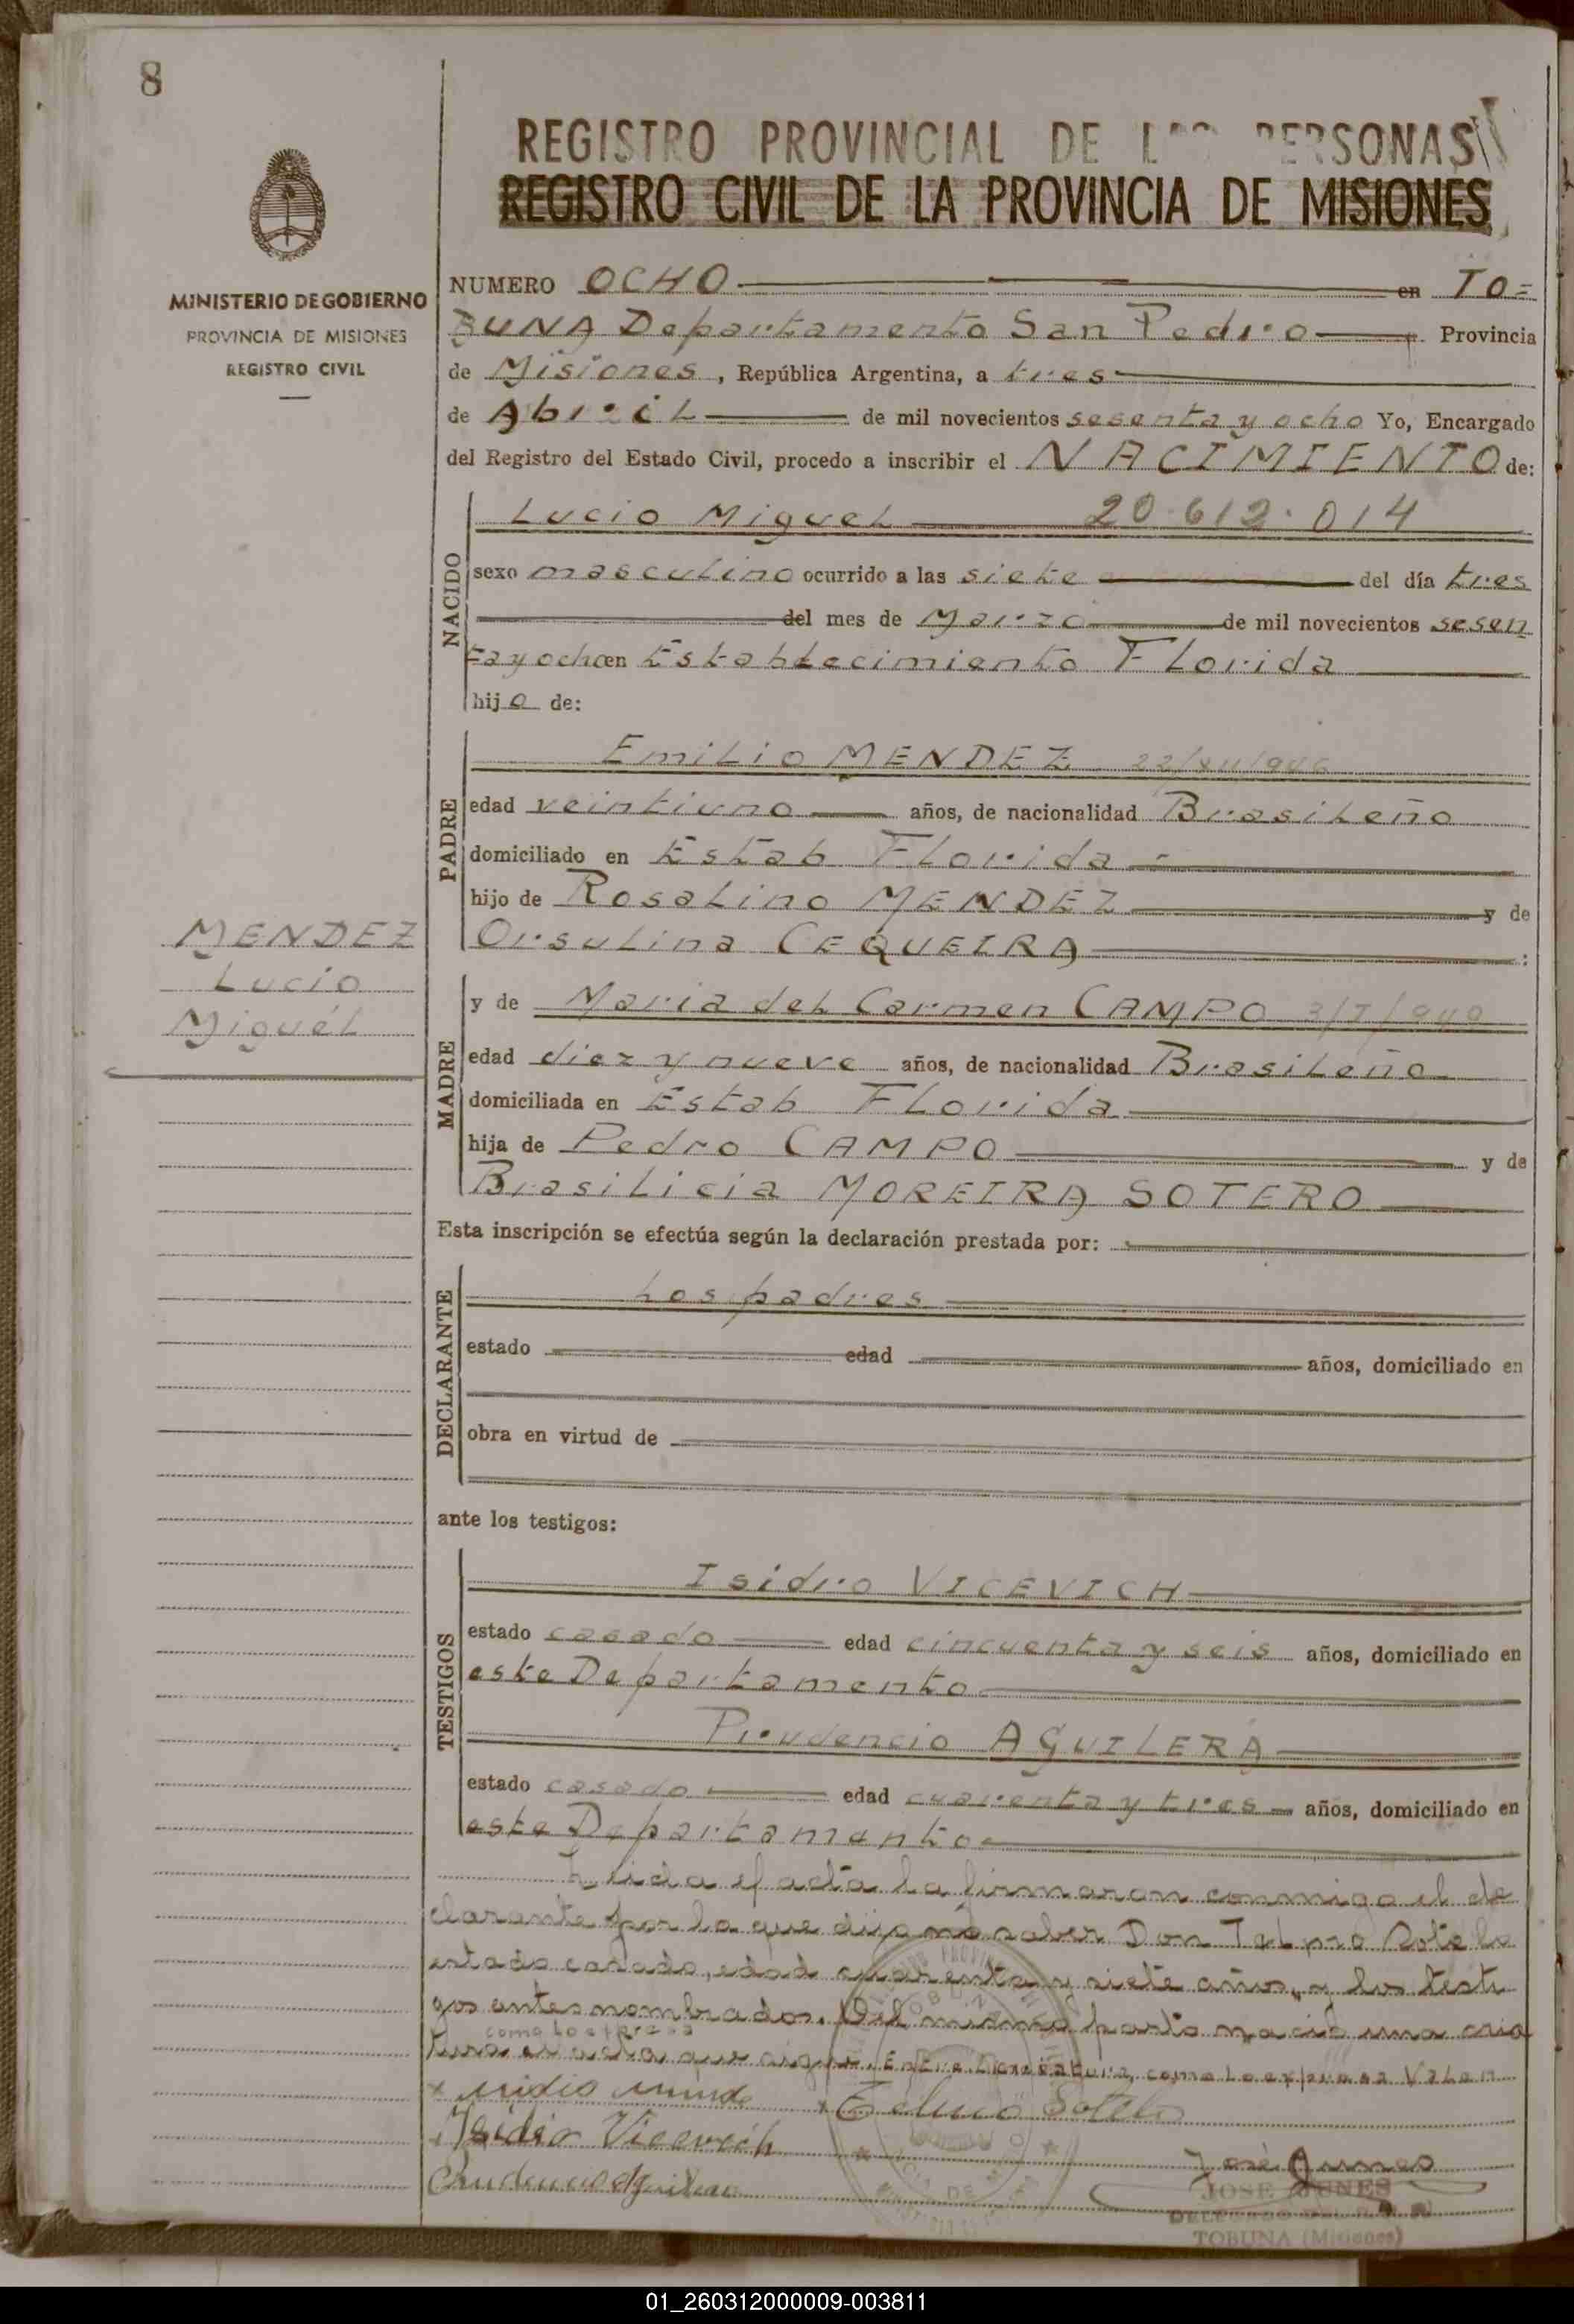 8
REGISTRO PROVINCIAL DE LAS PERSONAS
REGISTRO CIVIL DE LA PROVINCIA DE MISIONES
MINISTERIO DE GOBIERNO
PROVINCIA DE MISIONES
REGISTRO CIVIL
NUMERO OCHO en TO=
BUNA Departamento San Pedro Provincia
de Misiones, República Argentina, a tres
de Abril de mil novecientos sesenta y ocho Yo, Encargado
del Registro del Estado Civil, procedo a inscribir el NACIMIENTO de:
NACIDO
Lucio Miguel 20.612.014
sexo masculino ocurrido a las siete del día tres
del mes de Marzo de mil novecientos sesen
ta y ocho en Establecimiento Florida
hijo de:
PADRE
Emilio MENDEZ 22/XII/946
edad veintiuno años, de nacionalidad Brasileño
domiciliado en Estab Florida
hijo de Rosalino MENDEZ y de
Orsulina CEQUEIRA
MENDEZ
Lucio
Miguél
MADRE
y de Maria del Carmen CAMPO 3/I/949
edad diez y nueve años, de nacionalidad Brasileña
domiciliada en Estab Florida
hija de Pedro CAMPO y de
Brasilicia MOREIRA SOTERO
Esta inscripción se efectúa según la declaración prestada por:
DECLARANTE
Los padres
estado edad años, domiciliado en
obra en virtud de
ante los testigos:
TESTIGOS
Isidro VICEVICH
estado casado edad cincuenta y seis años, domiciliado en
este Departamento
Prudencio AGUILERA
estado casado edad cuarenta y tres años, domiciliado en
este Departamento
Leida el acta la firmaron conmigo el de
clarante por la que dijo no saber Don Telmo Sotelo
estado casado, edad cuarenta y siete años, y los testi
gos antes nombrados. Del mismo parto nació una cria
como lo expresa
tura el acta que sigue. Entre como lo expresa Valen
Emidio Mende Telmo Sotelo
Isidro Vicevich
José Junes
Prudencio Aguilera
JOSE JUNES
TOBUNA (Misiones)
01_260312000009-003811